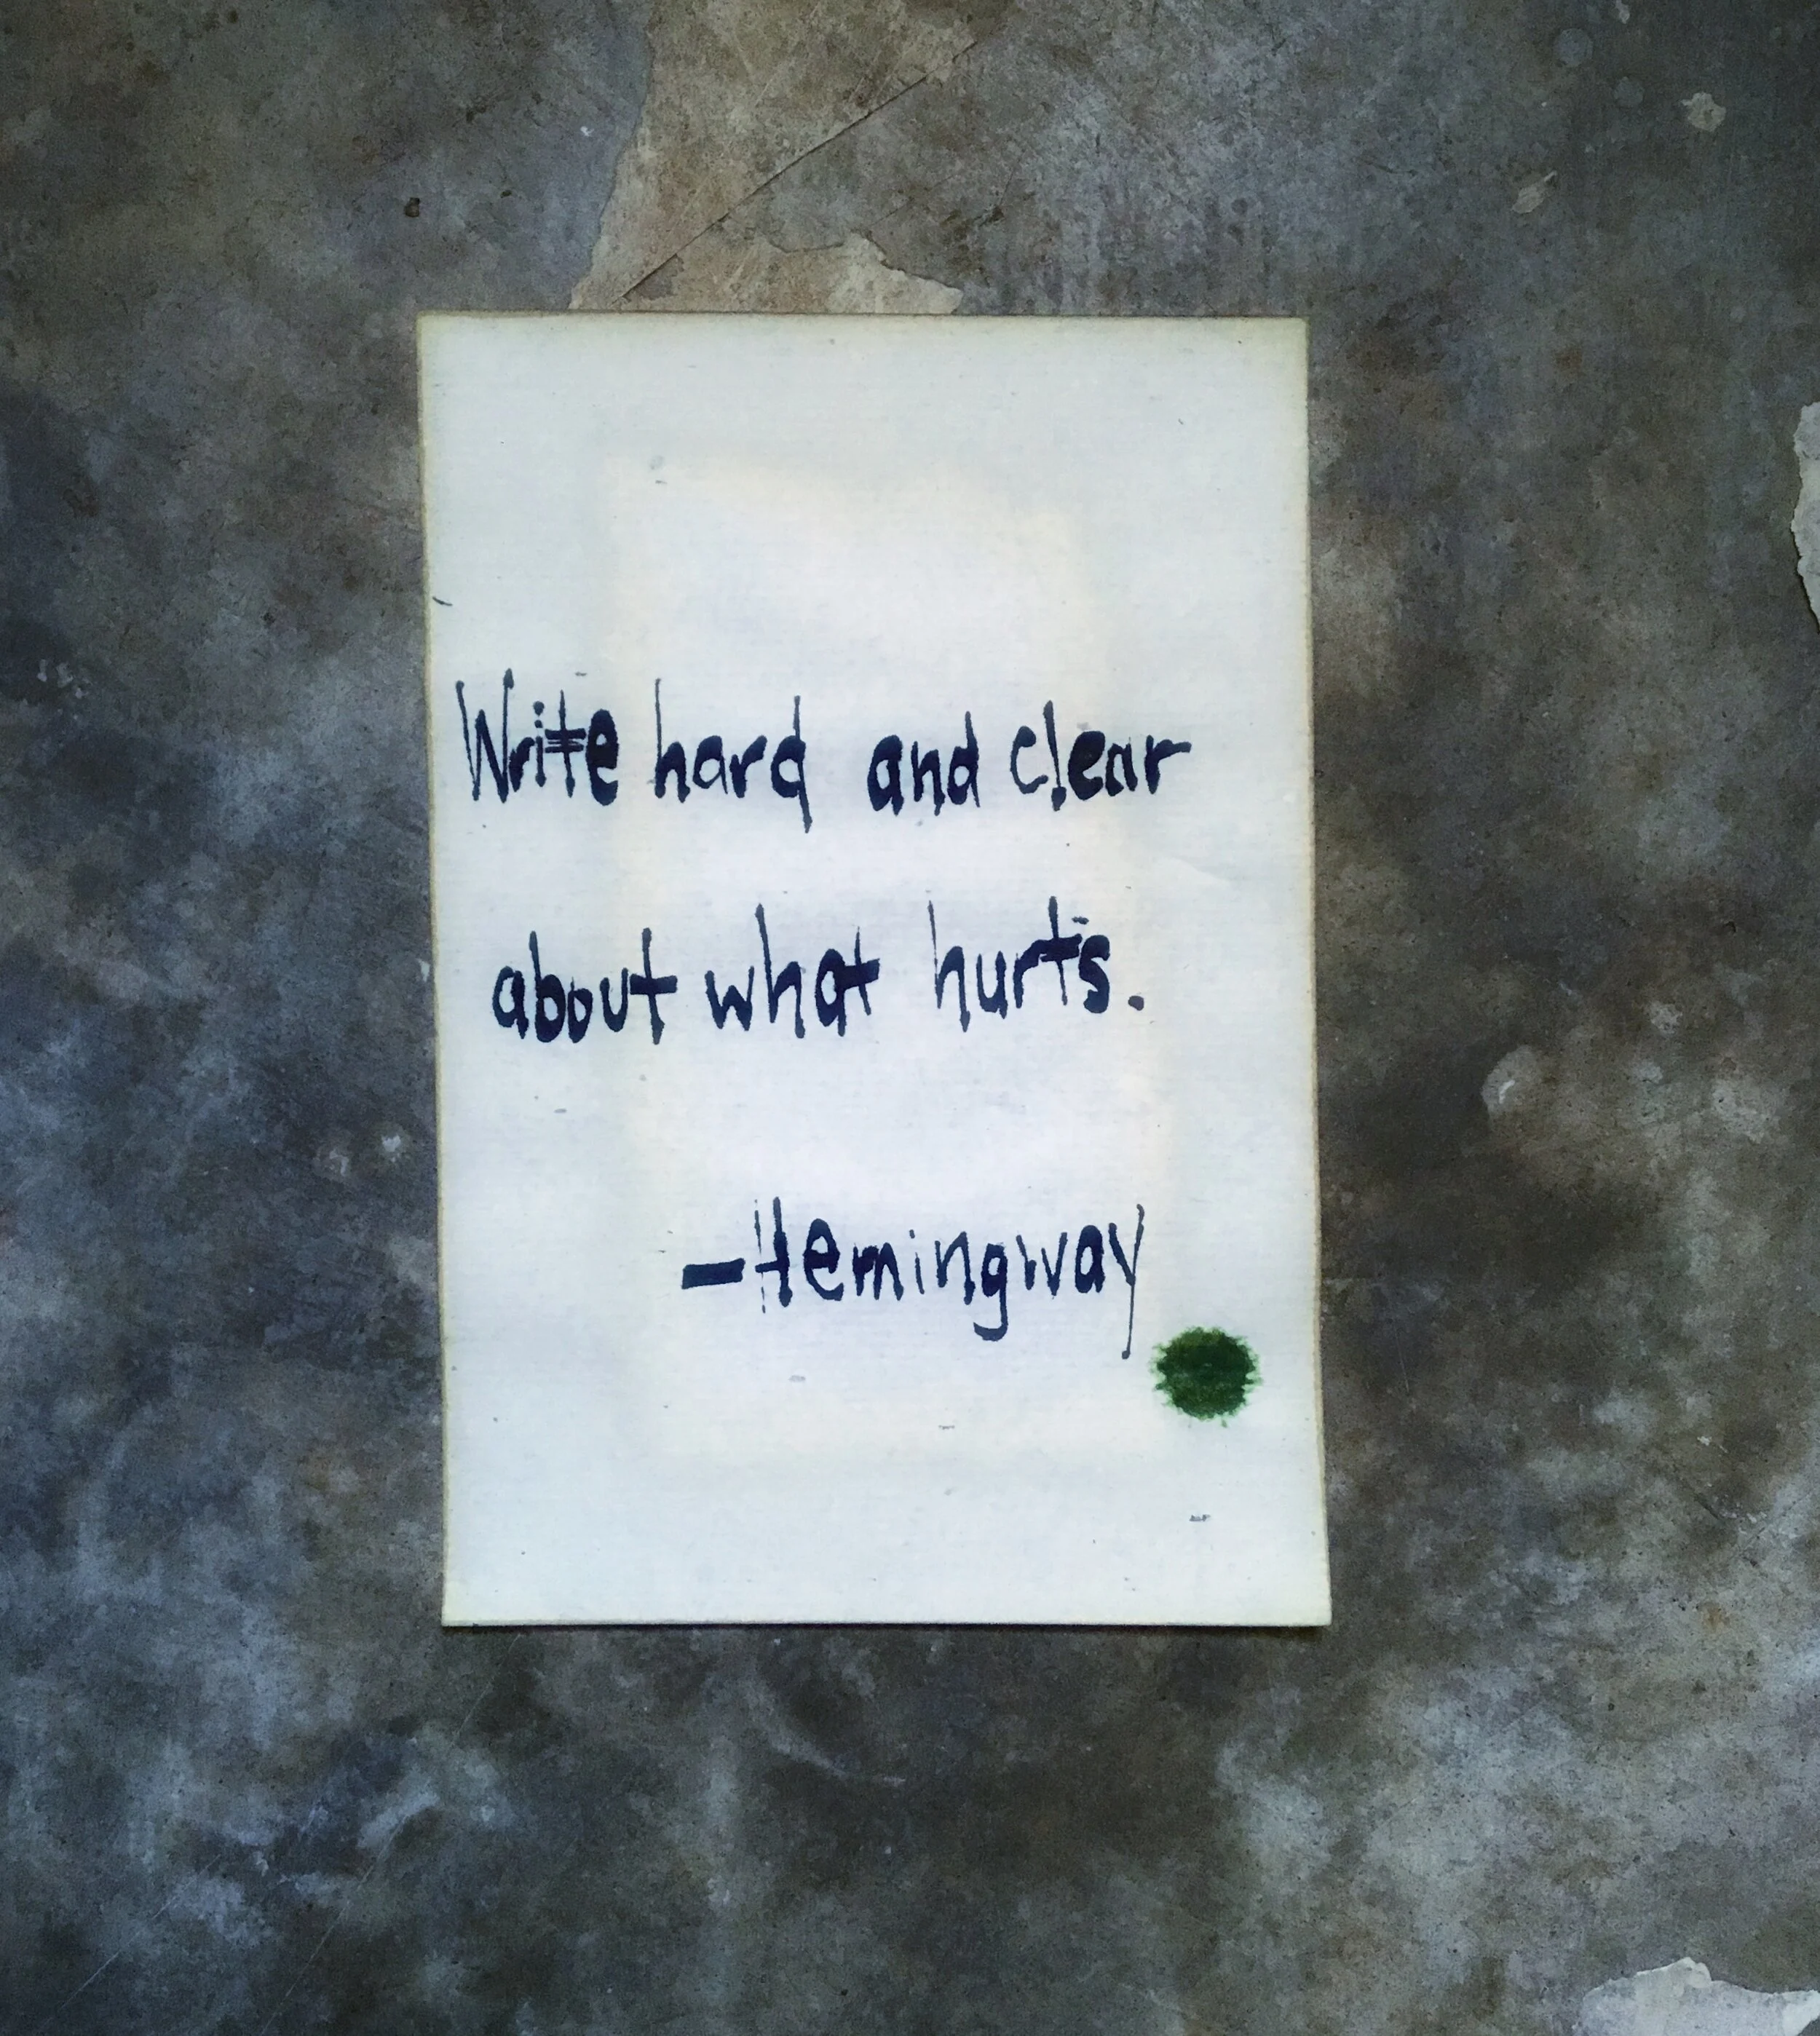 Write hard and clear
about what hurts.
-Hemingway